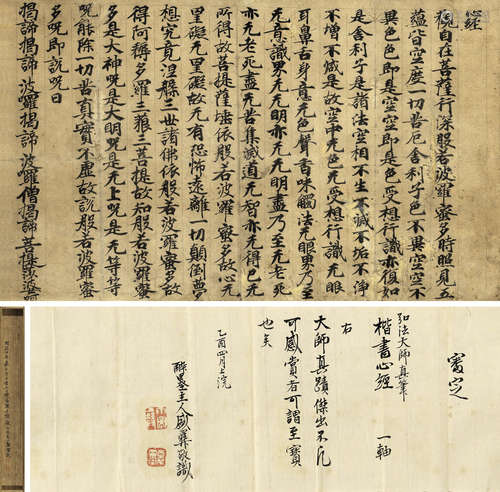 心經
觀自在菩薩行深般若波羅蜜多時照見五
蘊皆空度一切苦厄舍利子色不異空空不
異色色即是空空即是色受想行識亦復如
是舍利子是諸法空相不生不滅不垢不淨
不增不減是故空中无色无受想行識无眼
耳鼻舌身意无色聲香味觸法无眼界乃至
无意識界无无明亦无无明盡乃至无老死
亦无老死盡无苦集滅道无智亦无得已无
所得故菩提薩埵依般若波羅蜜多故心无
罣礙无罣礙故无有恐怖遠離一切顛倒夢
想究竟涅槃三世諸佛依般若波羅蜜多故
得阿耨多羅三藐三菩提故知般若波羅蜜
多是大神呪是大明呪是无上呪是无等等
呪能除一切苦真實不虛故說般若波羅蜜
多呪即說呪曰
揭諦揭諦 波羅揭諦 波羅僧揭諦 菩提薩婆訶
審定
弘法大師真筆
楷書心經 一軸
右
大師真蹟傑出不凡
可感賞者可謂至寶
也矣
乙酉四月上浣
主人敬識